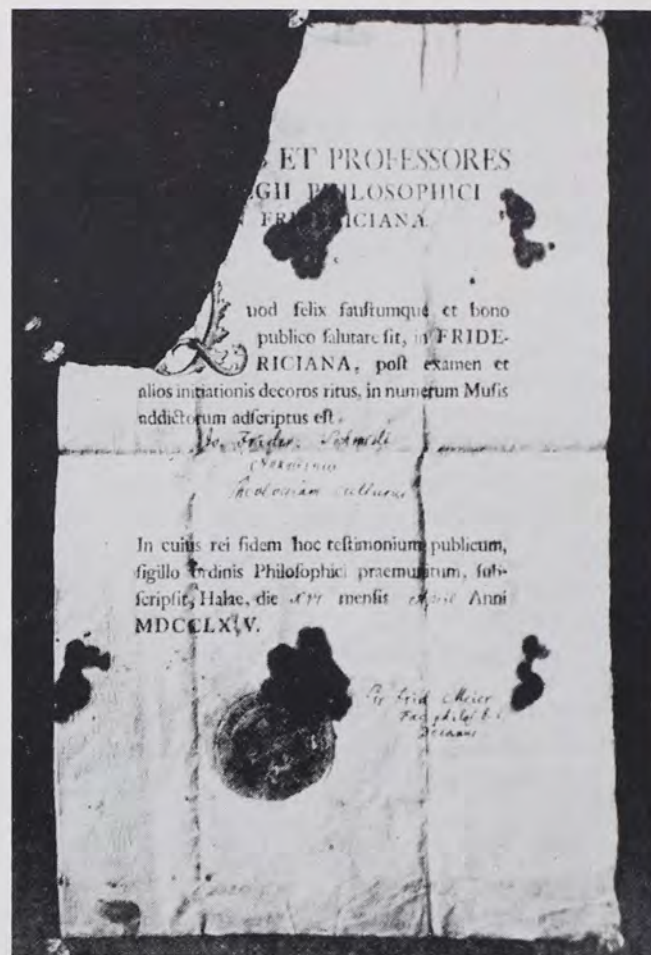 ET PROFESSORES
GII PHILOSOPHICI
FRIDERICIANA.
Quod felix faustumque et bono
publico salutare sit, in FRIDE-
RICIANA, post examen et
alios initiationis decoros ritus, in numerum Musis
addictorum adscriptus est
Jo. Frider. Schmidt
Theologiam culturus
In cuius rei fidem hoc testimonium publicum,
sigillo ordinis Philosophici praemunitum, sub-
scripsit, Halae, die XVI mensis Anni
MDCCLXIV.
Frid Meier
Fac philos h. t.
Decanus